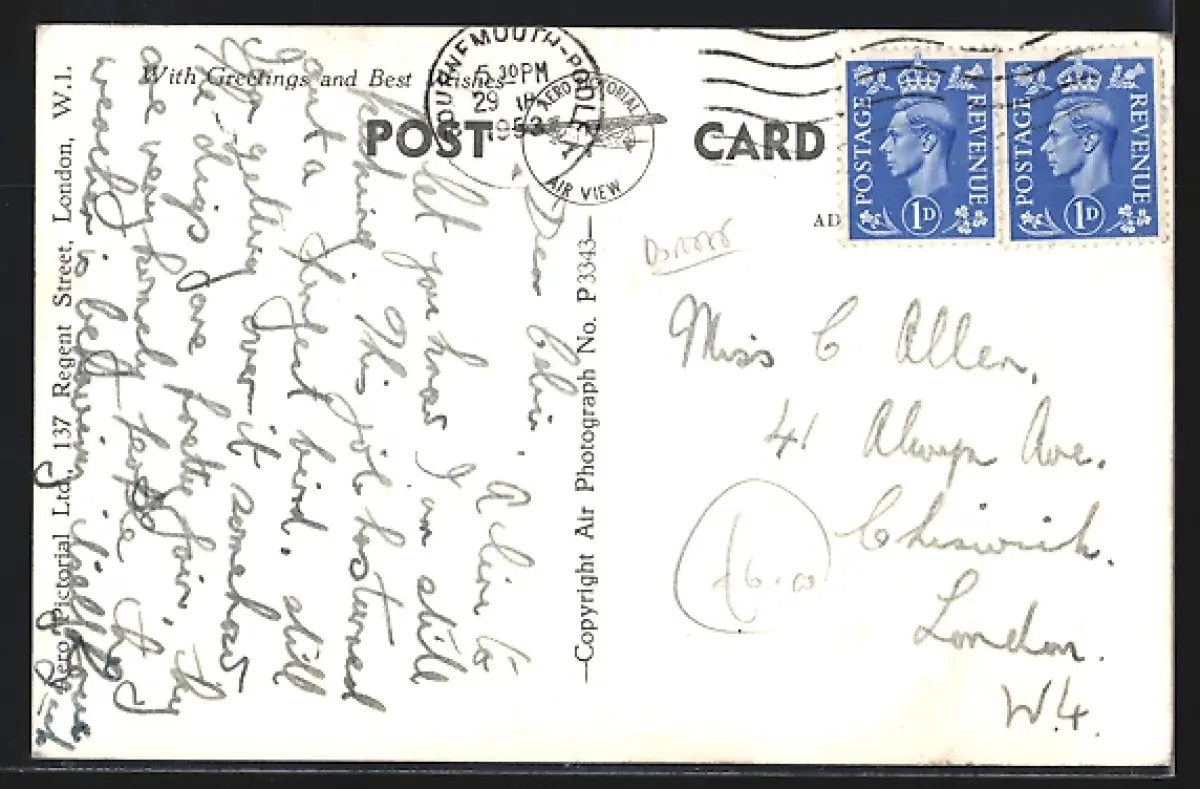 With Greetings and Best Wishes
BOURNEMOUTH-POOLE
5 30PM
29
1953
AERO PICTORIAL
AIR VIEW
POST CARD
POSTAGE REVENUE
1D
POSTAGE REVENUE
1D
AD
Dorset
Miss C Allen,
41 Alwyn Ave.
Chiswick.
London.
W.4.
£6.00
—Copyright Air Photograph No. P3343—
Aero Pictorial Ltd., 137 Regent Street, London, W.1.
Dear Celia. A line to
let you know I am still
kicking This job has turned
out a funny bird. still
I'm getting over it somehow
the digs are pretty fair, they
are very homely people the
weather is behaving itself